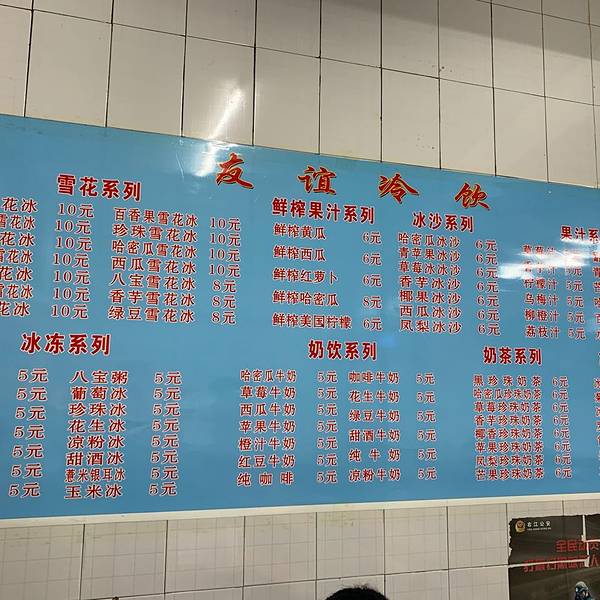 友谊冷饮
雪花系列
花冰 10元 百香果雪花冰 10元
雪花冰 10元 珍珠雪花冰 10元
花冰 10元 哈密瓜雪花冰 10元
雪花冰 10元 西瓜雪花冰 10元
花冰 10元 八宝雪花冰 8元
雪花冰 10元 香芋雪花冰 8元
花冰 10元 绿豆雪花冰 8元
鲜榨果汁系列
鲜榨黄瓜 6元
鲜榨西瓜 6元
鲜榨红萝卜 6元
鲜榨哈密瓜 8元
鲜榨美国柠檬 6元
冰沙系列
哈密瓜冰沙 6元
青苹果冰沙 6元
草莓冰冰沙 6元
香芋冰沙 6元
椰果冰沙 6元
西瓜冰沙 6元
凤梨冰沙 6元
果汁系
柠檬汁 5元
乌梅汁 5元
柳橙汁 5元
荔枝汁 5元
冰冻系列
5元 八宝粥 5元
5元 葡萄冰 5元
5元 珍珠冰 5元
5元 花生冰 5元
5元 凉粉冰 5元
5元 甜酒冰 5元
5元 薏米银耳冰 5元
5元 玉米冰 5元
奶饮系列
哈密瓜牛奶 5元 咖啡牛奶 5元
草莓牛奶 5元 花生牛奶 5元
西瓜牛奶 5元 绿豆牛奶 5元
苹果牛奶 5元 甜酒牛奶 5元
橙汁牛奶 5元 纯牛奶 5元
红豆牛奶 5元 凉粉牛奶 5元
纯咖啡 5元
奶茶系列
黑珍珠奶茶 6元
哈密瓜珍珠奶茶 6元
草莓珍珠奶茶 6元
香芋珍珠奶茶 6元
椰香珍珠奶茶 6元
苹果珍珠奶茶 6元
凤梨珍珠奶茶 6元
芒果珍珠奶茶 6元
右江公安
全民